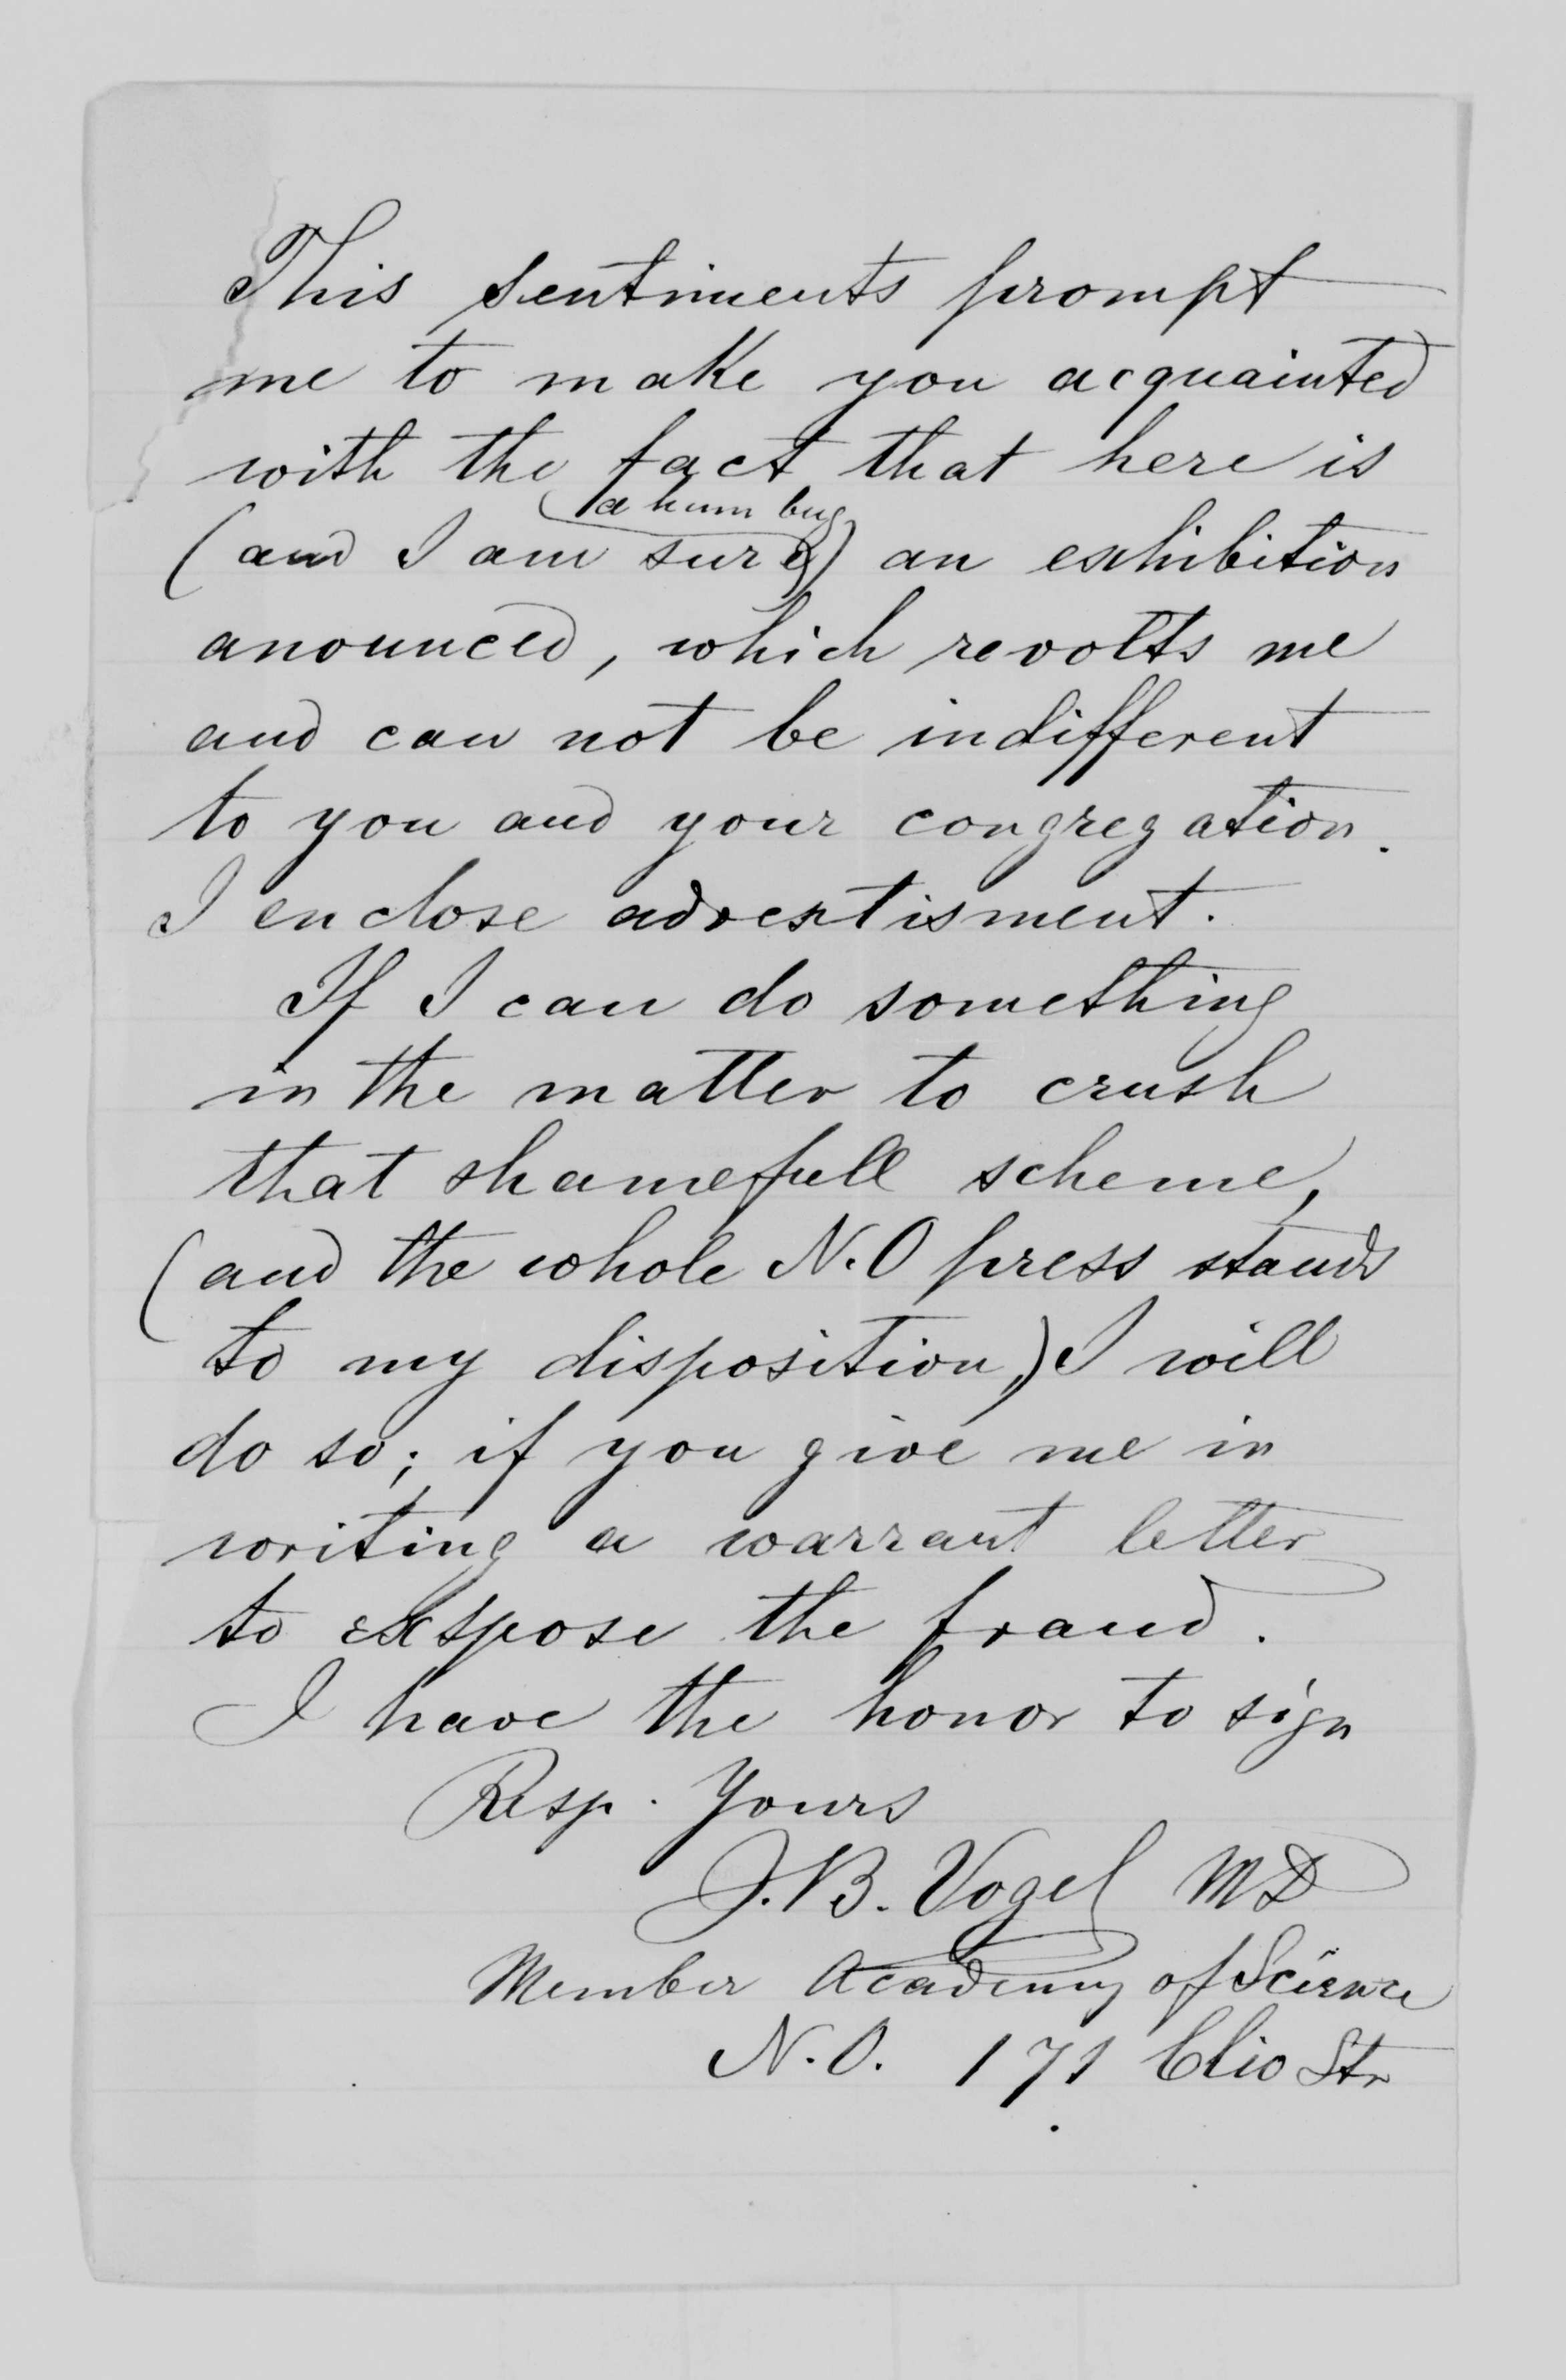 This sentiments prompt
me to make you acquainted
with the fact that here is
a hum bug
(and I am sure) an exhibition
anounced, which revolts me
and can not be indifferent
to you and your congregation.
I enclose advertisment.
If I can do something
in the matter to crush
that shamefull scheme,
(and the whole N.O press stands
to my disposition,) I will
do so; if you give me in
writing a warrant letter
to exspose the fraud.
I have the honor to sign
Resp. Yours
J.B. Vogel MD
Member Academy of Science
N.O. 171 Clio Str